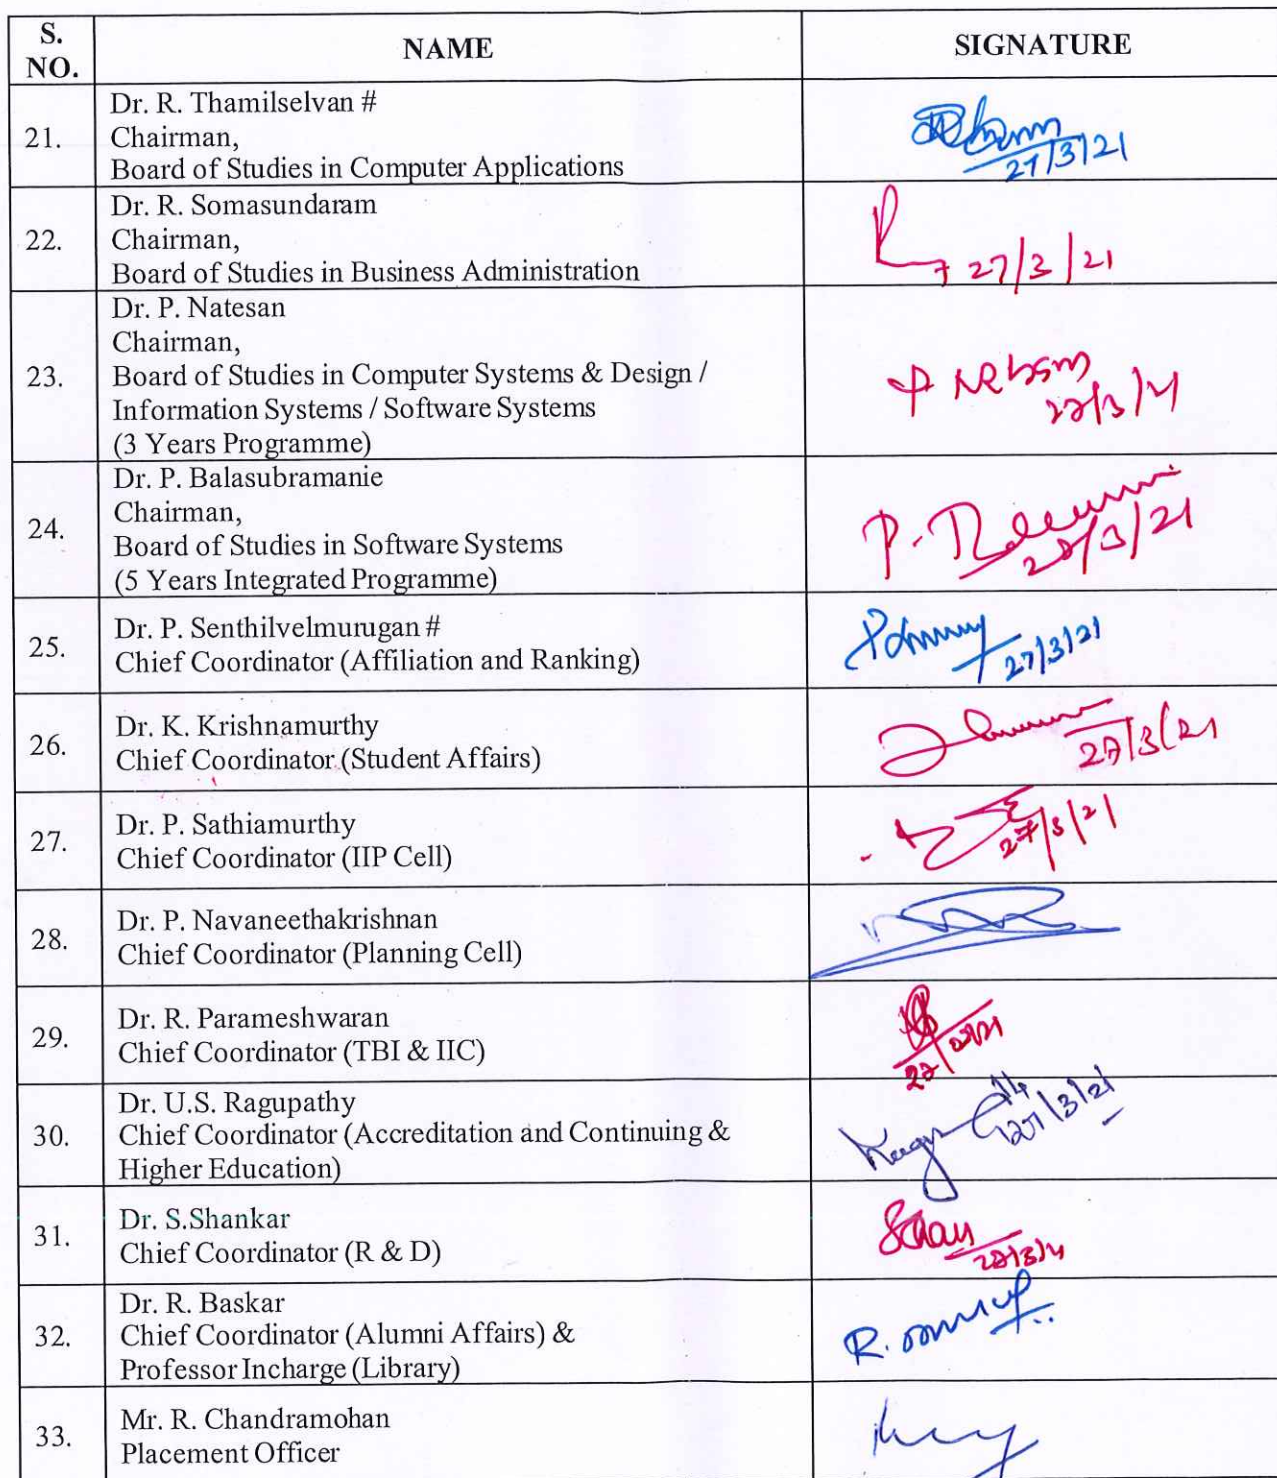 S.
NO.
NAME
SIGNATURE
21.
Dr. R. Thamilselvan #
Chairman,
Board of Studies in Computer Applications
27/3/21
22.
Dr. R. Somasundaram
Chairman,
Board of Studies in Business Administration
27/3/21
23.
Dr. P. Natesan
Chairman,
Board of Studies in Computer Systems & Design /
Information Systems / Software Systems
(3 Years Programme)
27/3/21
24.
Dr. P. Balasubramanie
Chairman,
Board of Studies in Software Systems
(5 Years Integrated Programme)
P.
25.
Dr. P. Senthilvelmurugan #
Chief Coordinator (Affiliation and Ranking)
27/3/21
26.
Dr. K. Krishnamurthy
Chief Coordinator (Student Affairs)
27/3/21
27.
Dr. P. Sathiamurthy
Chief Coordinator (IIP Cell)
27/3/21
28.
Dr. P. Navaneethakrishnan
Chief Coordinator (Planning Cell)
29.
Dr. R. Parameshwaran
Chief Coordinator (TBI & IIC)
30.
Dr. U.S. Ragupathy
Chief Coordinator (Accreditation and Continuing &
Higher Education)
27/3/21
31.
Dr. S.Shankar
Chief Coordinator (R & D)
32.
Dr. R. Baskar
Chief Coordinator (Alumni Affairs) &
Professor Incharge (Library)
R.
33.
Mr. R. Chandramohan
Placement Officer